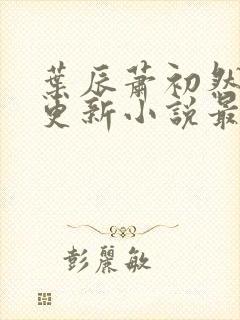 葉辰蕭初然
更新小說最
彭麗敏